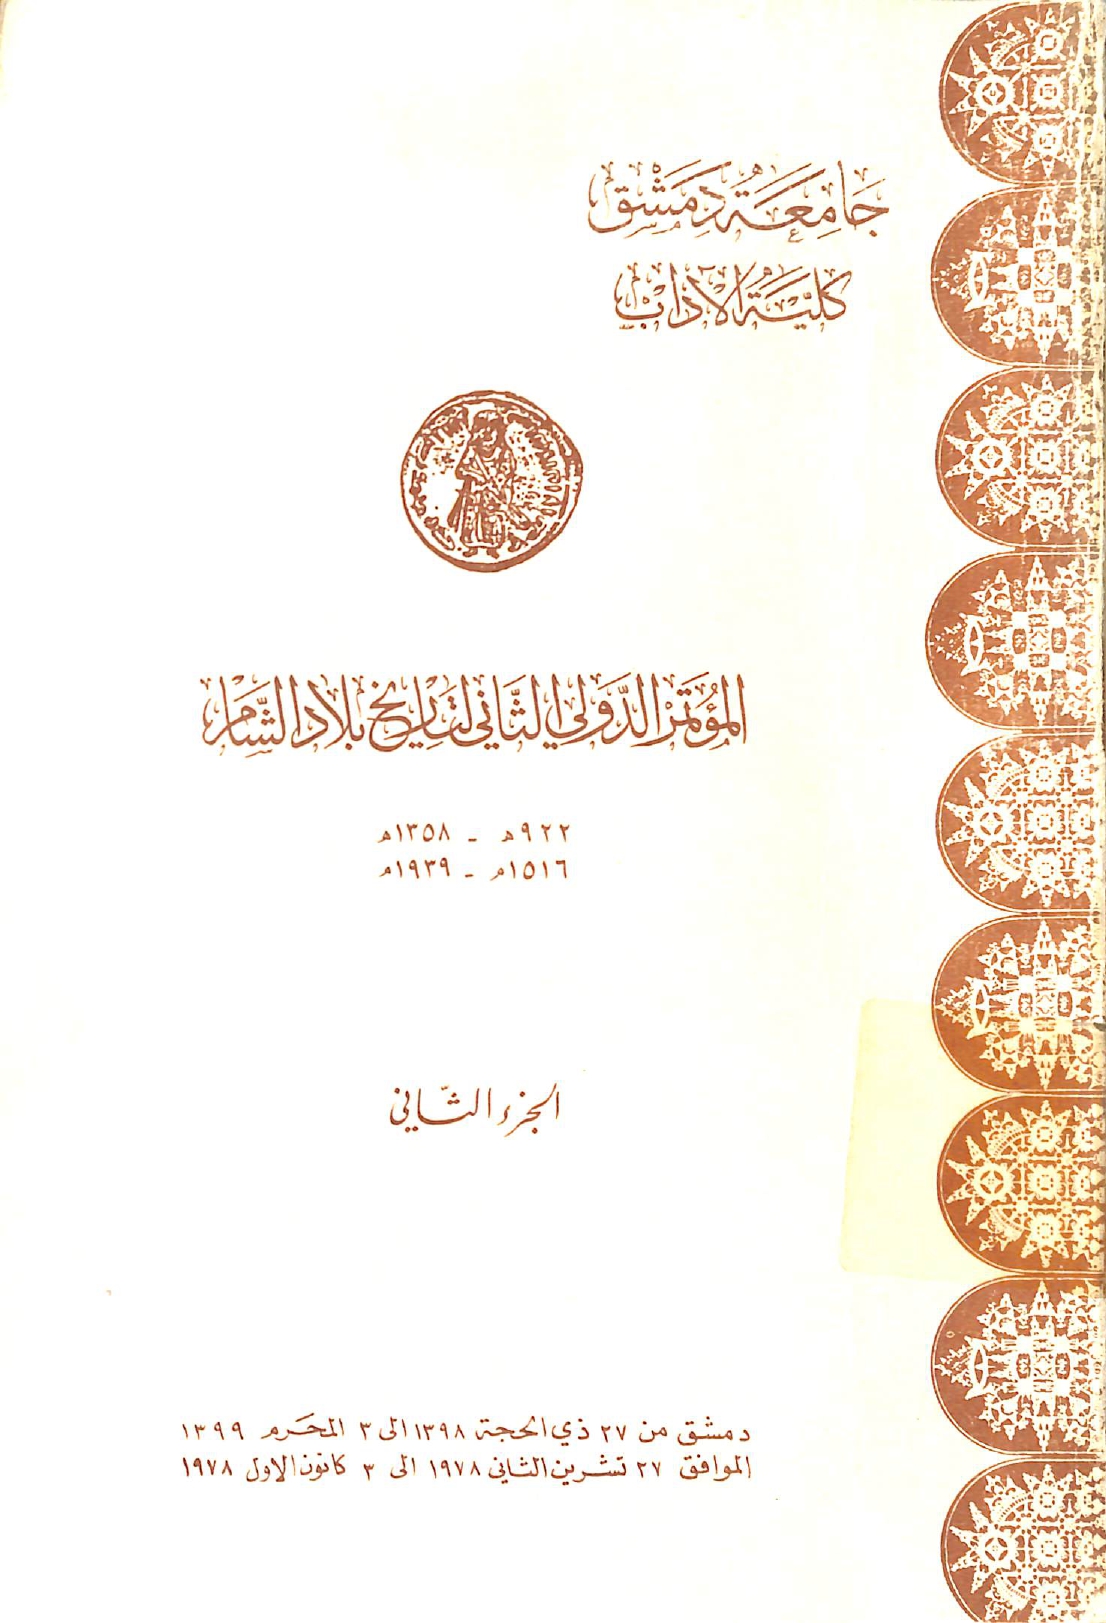 جَامِعَةُ دِمَشْق
كليَّةُ الآدَاب
المؤتمر الدَّولي الثَّاني لتَاريخ بلاد الشَّام
٩٢٢هـ - ١٣٥٨هـ
١٥١٦م - ١٩٣٩م
الجزء الثَّاني
دمشق من ٢٧ ذي الحجة ١٣٩٨ الى ٣ المحَرم ١٣٩٩
الموافق ٢٧ تشرين الثاني ١٩٧٨ الى ٣ كانون الاول ١٩٧٨